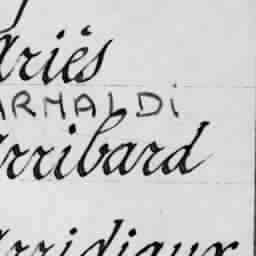 Ariës
ARNALDi
Arribard
Arridiaux